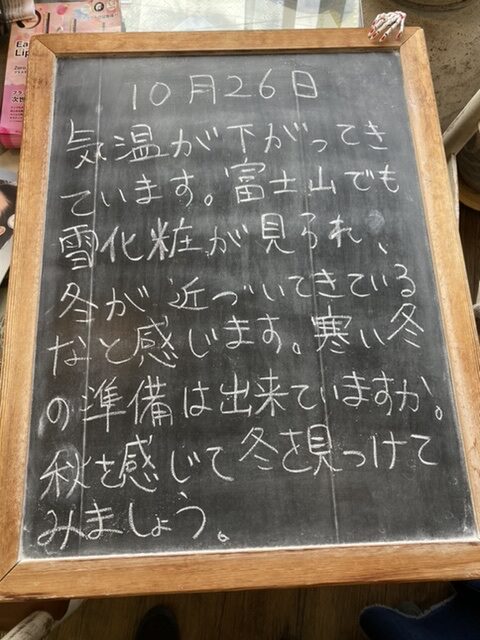 10月26日
気温が下がってき
ています。富士山でも
雪化粧が見られ、
冬が近づいてきている
なと感じます。寒い冬
の準備は出来ていますか。
秋を感じて冬を見つけて
みましょう。